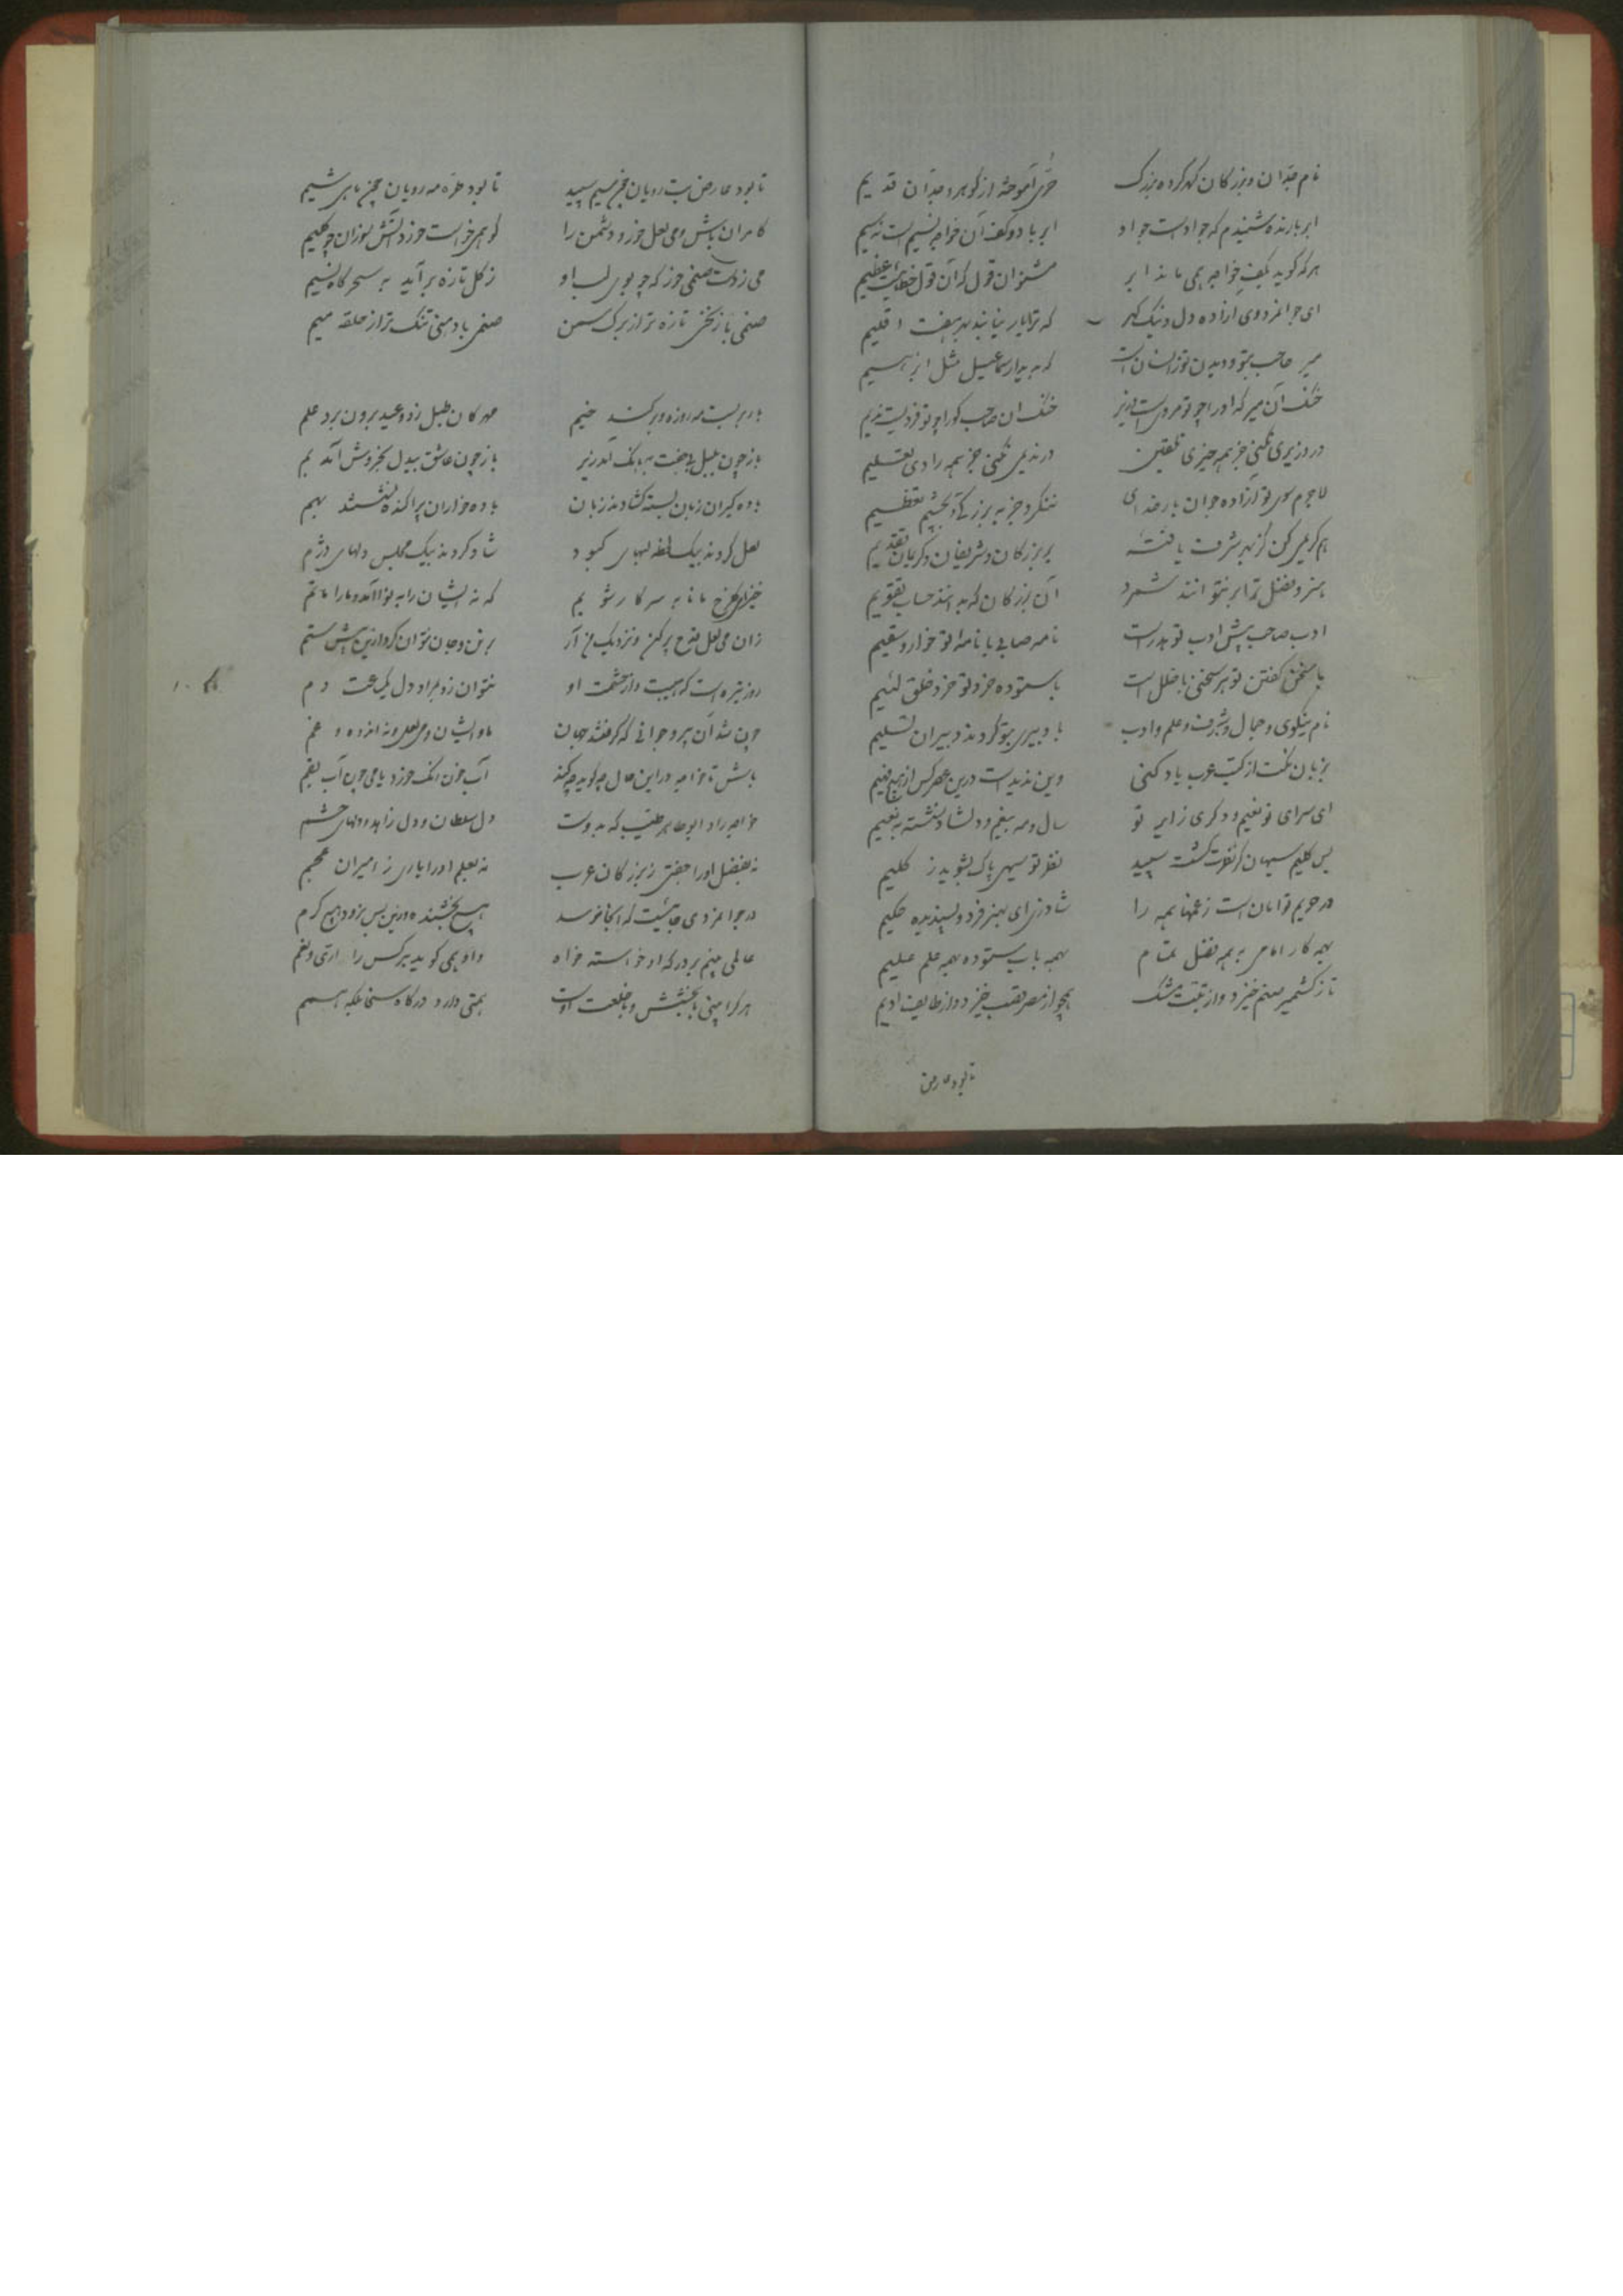 نام جدان و بزرگان گهر کرده بزرگ حری آموخته از گوهر و جدان قدیم
ابر بارنده شنیدم که جوادست جواد ابر با دو کف آن خواجه نسیم است نسیم
هر که گوید بکف خواجه همی ماند ابر مشنو ان قول که آن قول خطاییست عظیم
ای جوانمردوی ازاده دل و نیک گهر که ترا یار نیابند بهر هفت اقلیم
میر صاحب بتو و دیدن تو زانسان است که به دیدار سماعیل مثل ابرهیم
خنک آن میر که او را چو تو مردیست وزیر خنک ان صاحب کو را چو تو فردیست ندیم
در وزیری نکنی جز همه چیزی تلقین در ندیمی نکنی جز همه رادی تعلیم
لاجرم سوی تو آزاده جوان بار خدای ننگرد جز به بزرگی و بچشم تعظیم
هم کریمی کن کز بهر شرف یافته بر بزرگان و شریفان و کریمان تقدیم
هنر و فضل ترا بر نتوانند شمرد آن بزرگان که بدانند حساب تقویم
ادب صاحب پیش ادب تو هدرست نامه صابی با نامه تو خوار و سقیم
با سخن گفتن تو هر سخنی با خللست با ستوده خرد تو خرد خلق لئیم
نام نیکوی و جمال و شرف و علم و ادب با دبیری بتو کردند دبیران تسلیم
بزبان نکت از کتب عرب یاد کنی وین ندیدست درین عصر کس از هیچ فهیم
ای سرای تو نعیم و دگری زایر تو سال و مه بیغم و دلشاد نشسته به نعیم
بس کلیم سیهان کز نظرت گشت سپید نظر تو سیهی پاک بشوید ز کلیم
در حریم تو امان است زغمها همه را شاد زی ای بهنر فرد و پسندیده حکیم
بهمه کار امامی به همه فضل تمام بهمه باب ستوده بهمه علم علیم
تا ز کشمیر صنم خیزد و از تبت مشک همچو از مصر قصب خیزد و از طایف ادیم
تا بود عارض
تا بود عارض بت رویان چون سیم سپید تا بود طره مه رویان چون ماهی شیم
کامران باش و می لعل خور و دشمن را گو همی خواست خورد آتش سوزان چو ظلیم
می ز دست صنمی خور که چو بوی لب او ز گل تازه بر آید به سحرگاه نسیم
صنمی با زنخی تازه تر از برگ سمن صنمی با دهنی تنگ تر از حلقه میم
بار بربست مه روزه و برکند خیم مهرگان طبل زد و عید برون برد علم
باز چون بلبل بی جفت ببانگ آمد زیر باز چون عاشق بیدل بخروش آمد بم
باده گیران زبان بسته گشادند زبان باده خواران پراکنده نشستند بهم
لعل کردند بیک لحظه لبهای کبود شاد کردند بیک مجلس دلهای دژم
خیز ای بت ما نا بسر کار شویم که نه ایشان را به نوا آمد و ما را ماتم
زان می لعل قدح پر کن و نزدیک من آر بر تن و جان نتوان کرد ازین بیش ستم
روز تیره است که هیبت و از حشمت او نتوان زد بمراد دل یک ساعت دم
چون شد آن پیر و جوانی که گرفتند جهان ما و ایشان و می لعل و نه اندوه و نه غم
باش تا خواجه در این حال چه گوید چه کند آب خون انک خورد یا می چون آب بقم
خواجه راد ابو طاهر طیب که بدوست دل سلطان و دل زاهد و دلهای حشم
نه بفضل او را جفتی ز بزرگان عرب نه بعلم او را یاری ز امیران عجم
در جوانمردی جاییست که آنجا نرسد هیچ بخشنده و زین بس نرود هیچ کرم
عالمی بینم بر درگه او خواسته خواه واو همی گوید هر کس را آری و نعم
هر کرا بینی با بخشش و با خلعت اوست همتی دارد در کار سخا بلکه همم